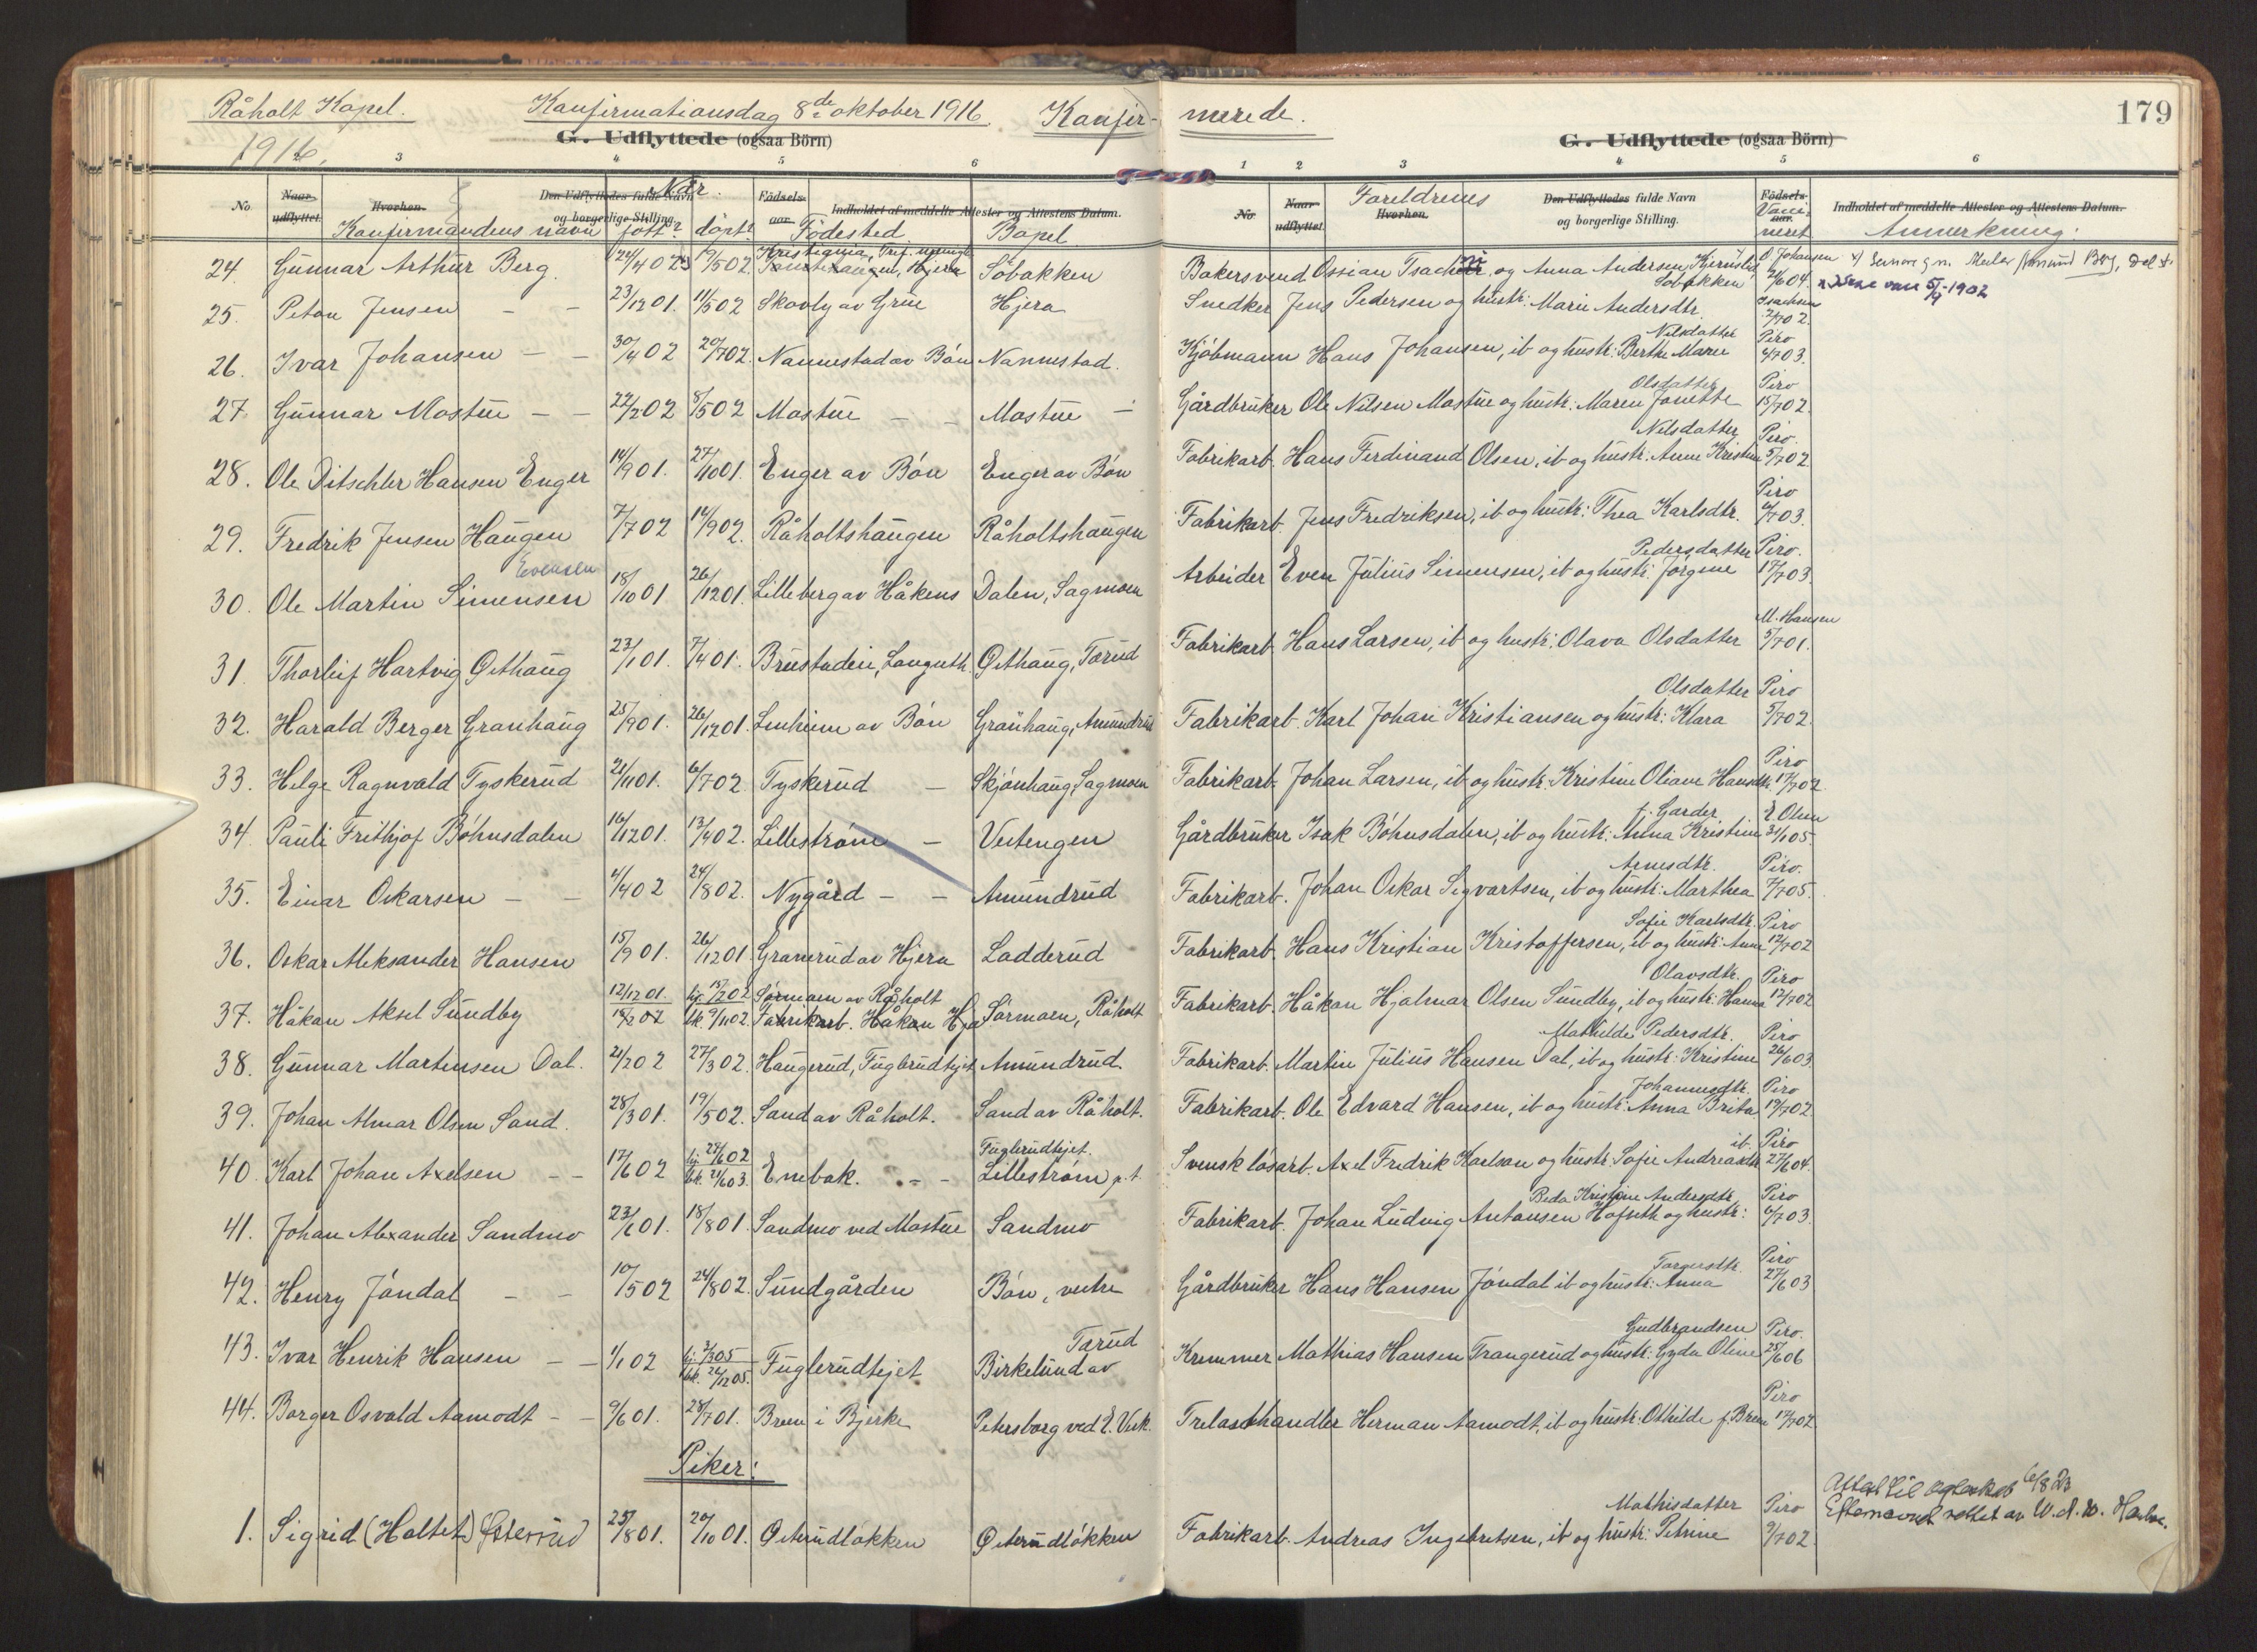 Råholt Kapel. Konfirmationsdag 8de oktober 1916. Konfir-
1916.
G. Udflyttede (ogsaa Börn)
3 4 5 6
No. Naar udflyttet Hvorhen. Den Udflyttedes fulde Navn og borgerlige Stilling. Födsels-aar. Indholdet af meddelte Attester og Attestens Datum.
Konfirmandens navn Når født? døpt? Födested Bopel
24. Gunnar Arthur Berg. 24/4 02 19/5 02 Kristiania, Hjera Söbakken
25. Peton Jensen - - 23/12 01. 11/5 02 Skovly av Grue Hjera
26. Ivar Johansen - - 30/4 02 20/7 02. Nannestad av Bön Nannestad.
27. Gunnar Mostue - - 22/2 02 8/5 02 Mostue - - Mostue -
28. Ole Ditschler Hansen Enger 14/9 01. 27/10 01. Enger av Bön Enger av Bön
29. Fredrik Jensen Haugen 7/7 02 14/9 02. Råholtshaugen Råholtshaugen
Evensen
30. Ole Martin Simensen 18/10 01 26/12 01. Lilleberg av Håkens Dalen, Sagmoen
31. Thorleif Hartvig Østhaug 23/1 01. 7/4 01. Brustadein, Langseth. Østhaug, Tærud
32. Harald Berger Granhaug 25/9 01. 26/12 01. Lenheim av Bön Granhaug, Amundrud
33. Helge Ragnvald Tyskerud 21/11 01. 6/7 02. Tyskerud - Skjönhaug, Sagmoen
34. Pauli Frithjof Böhnsdalen 16/12 01. 13/4 02. Lilleström - Vestengen
35. Einar Oskarsen - - 4/4 02 24/8 02. Nygård - - Amundrud
36. Oskar Aleksander Hansen 15/9 01. 26/12 01. Granerud av Hjera Ladderud
37. Håkon Aksel Sundby 12/12 01. hj. 15/2 02 Sørmoen av Råholt
bk. 9/11 02. Fabrikarb. Håkon Hja Sörmoen, Råholt
38. Gunnar Martinsen Dal. 21/2 02 27/3 02. Haugerud, Fuglerudtejet Amundrud
39. Johan Almar Olsen Sand. 28/3 01. 19/5 02. Sand av Råholt. Sand av Råholt.
Fuglerudtejet.
40. Karl Johan Axelsen - - 17/6 02 hj. 28/6 02 bk. 21/6 03. Enebak. - - Lilleström p.t.
41. Johan Alexander Sandmo 23/6 01. 18/8 01. Sandmo ved Mostue Sandmo
42. Henry Jöndal - - 10/5 02 24/8 02. Sundgården Bön, vestre
Tærud
43. Ivar Henrik Hansen - - 1/1 02 hj. 2/3 05 bk. 26/12 05. Fuglerudtejet Birkelund av
44. Borger Osvald Aamodt - - 9/6 01. 28/7 01. Breen i Bjerke Petersborg ved E. Verk.
Piker:
1. Sigrid (Holtet) Østerud 25/8 01. 20/10 01. Østerudløkken Østerudløkken
merede. 179
G. Udflyttede (ogsaa Börn)
1 2 3 4 5 6
No Naar udflyttet Hvorhen. Den Udflyttedes fulde Navn og borgerlige Stilling. Födsels-aar. Indholdet af meddelte Attester og Attestens Datum.
Foreldrenes Vaccineret Anmerkning:
Bakersvend Ossian og Anna Andersen, Söbakken O. Johansen 21/6 04.
5/4 1902
Snedker Jens Pedersen og hustr: Marie Andersdtr. Isachsen 2/7 02.
Kjöbmann Hans Johansen, ib og hustr: Berthe Marie Nilsdatter Piro 4/7 03.
Gårdbruker Ole Nilsen Mostue og hustr: Maren Jonette Olsdatter Piro 15/7 02.
Fabrikarb. Hans Ferdinand Olsen, ib og hustr: Anne Kristine Nilsdatter Piro. 5/7 02.
Fabrikarb. Jens Fredriksen, ib og hustr: Thea Karlsdtr. Piro 6/7 03.
Arbeider Even Julius Simensen, ib og hustr: Jørgine Pedersdatter Piro. 17/7 03.
Fabrikarb. Hans Larsen, ib og hustr: Olava Olsdatter M. Hansen 5/7 01.
Fabrikarb. Karl Johan Kristiansen og hustr: Klara Olsdatter Piro 5/7 02.
Fabrikarb. Johan Larsen, ib og hustr: Kristine Oliane Hansdtr. Piro 17/7 02.
Gårdbruker Isak Böhnsdalen, ib og hustr: Anna Kristine f. Garder E. Olsen 31/1 05.
Fabrikarb. Johan Oskar Sigvartsen, ib og hustr: Marthea Arnesdtr. Piro. 7/7 05.
Fabrikarb. Hans Kristian Kristoffersen, ib og hustr: Anne Sofie Karlsdtr. Piro 12/7 02
Fabrikarb. Håkon Hjalmar Olsen Sundby, ib og hustr: Hanna Olavsdtr. Piro 12/7 02
Fabrikarb. Martin Julius Hansen Dal, ib og hustr: Kristine Mathilde Pedersdtr. Piro 26/6 03.
Fabrikarb. Ole Edvard Hansen, ib og hustr: Anna Brita Johannesdtr. Piro 19/7 02.
Svensk lösarb. Axel Fredrik Karlson og hustr: Sofie Andreasdtr. ib. Piro 27/6 04.
Fabrikarb. Johan Ludvig Antonsen Hofseth og hustr: Beda Kristine Andersdtr. Piro 6/7 03.
Gårdbruker Hans Hansen Jöndal ib og hustr: Anna Piro 27/6 03
Kremmer Mathias Hansen Trangerud og hustr: Gyda Oline Gudbrandsen Piro. 25/6 06
Trelasthandler Herman Aamodt, ib og hustr: Othilde f. Breen Piro 17/7 02
Fabrikarb. Andreas Ingebretsen, ib og hustr: Petrine Mathisdatter Piro 9/7 02.
Attest til 6/8 23
Efternavnet rettet av